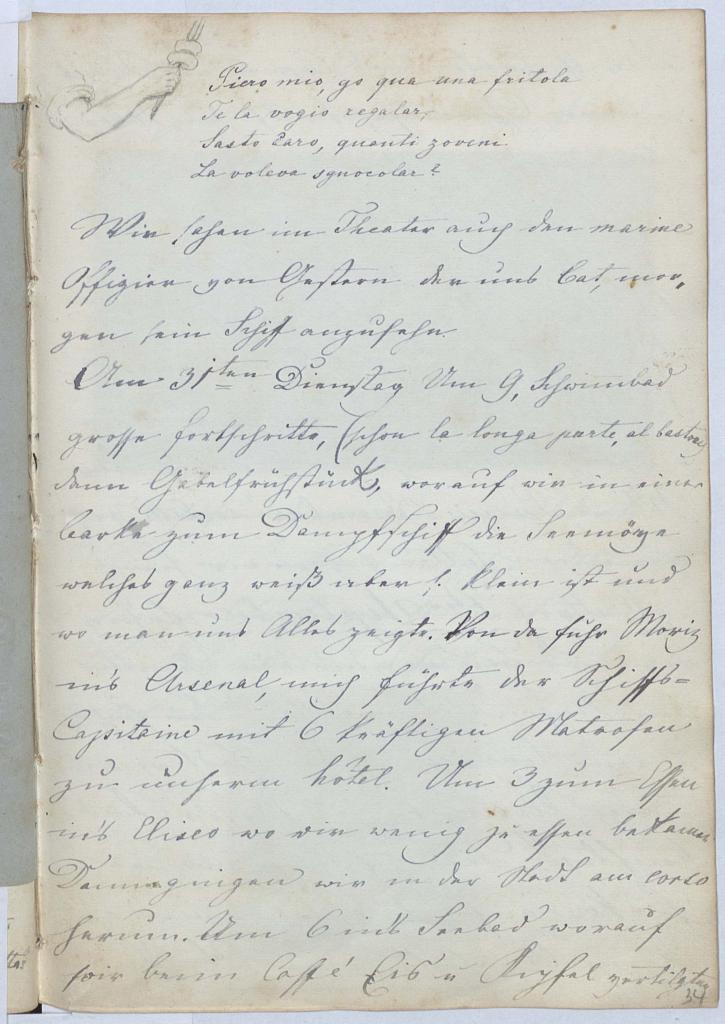 Piero mio, go qua una fritola
Te la vogio regalar,
Sasto Caro, quanti zoveni
La voleva sgnocolar?
Wir sahen im Theater auch den marine
Offizier von Gestern der uns bat, mor,
gen sein Schiff anzusehn.
Am 31ten Dienstag Um 9, Schwimbad
grosse fortschritte, (schon la longa parte, al
dann Gabelfrühstück, worauf wir in einer
barke zum Dampfschiff die Seemöve
welches ganz weiß aber s. klein ist und
wo man uns Alles zeigte. Von da fuhr Moriz
in's Arsenal, mich führte der Schiffs=
Capitaine mit 6 kräftigen Matrosen
zu unserm hôtel. Um 3 zum Essen
in's Eliseo wo wir wenig zu essen bekamen
Dann gingen wir in der Stadt am corso
herum. Um 6 in's Seebad worauf
wir beim Caffé Eis u Kipfel vertilgten
34